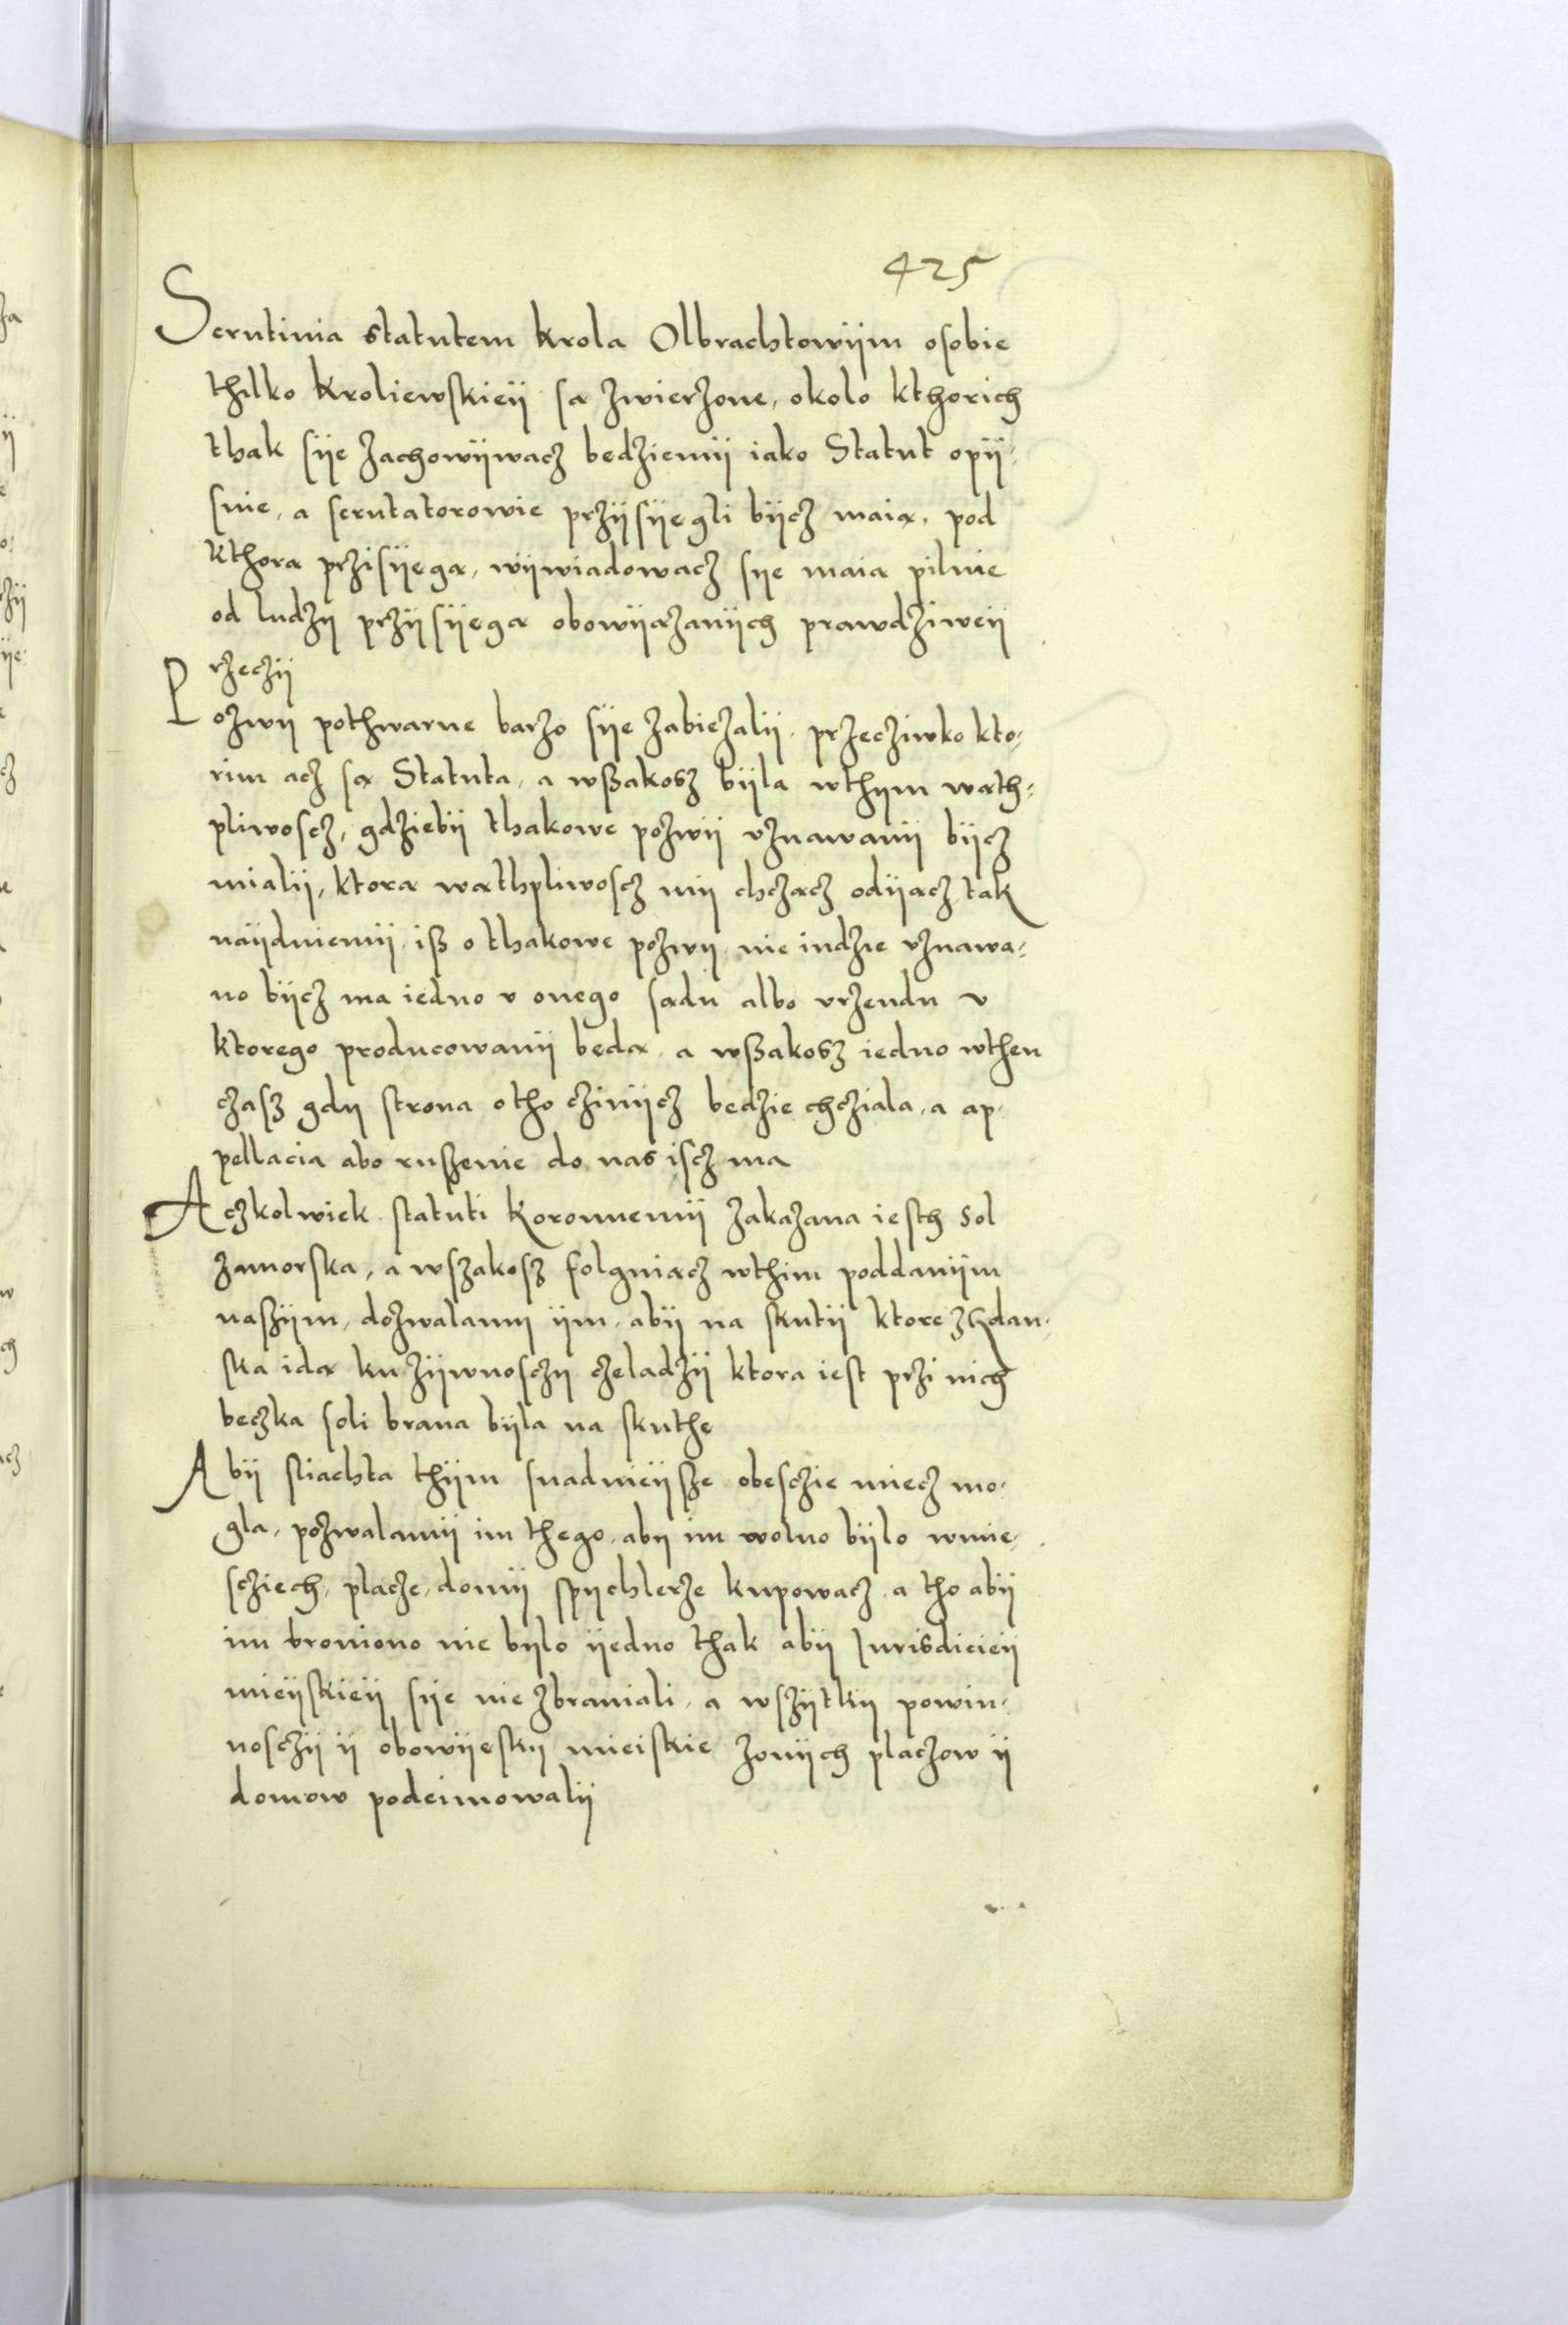 425
Scrutinia statutem krola Olbrachtowÿm osobie
thilko kroliewskieÿ są zwierzone, okolo kthorich
thak sÿe zachowÿwacz bedziemÿ iako Statut opÿ-
snie, a scrutatorowie przÿsÿęgli bÿcz maią, pod
kthorą przisÿegą, wÿwiadowacz sÿe maią pilnie
od ludzÿ przÿsÿegą obowÿązanÿch prawdziweÿ
rzeczÿ
Pozwÿ pothwarne barzo sÿe zabiezalÿ, przecziwko kto-
rim acz są Statuta, a wßakosz bÿla wthÿm wąth-
pliwoscz, gdziebÿ thakowe pozwÿ vznawanÿ bÿcz
mialÿ, ktorą wąthpliwoscz mÿ chcząc odÿącz tak
naÿdniemÿ, iß o thakowe pozwÿ nie indzie vznawa-
no bÿcz ma iedno v onego sądu albo vrzendu v
ktorego producowanÿ bedą, a wßakosz iedno wthen
czasz gdÿ strona otho czinÿcz bedzie chcziala, a ap-
pellacia abo ruszenie do nas iscz ma
Aczkolwiek statuti koronnemÿ zakazana iesth sol
zamorska, a wszakosz folguiącz wthim poddanÿm
naszÿm, dozwalamÿ ÿm, abÿ na skutÿ ktore z Gdan-
ska idą ku zÿwnosczÿ czeladzÿ ktora iest przi nich
beczka soli brana bÿla na skuthe
Abÿ sliachta thÿm snadnieÿsze obesczie miecz mo-
gla, pozwalamÿ im thego, abÿ im wolno bÿlo wmie-
sciech, placze, domÿ spÿchlerze kupowacz, a tho abÿ
im broniono nie bÿlo ÿedno thak abÿ Iurisdicieÿ
mieÿskieÿ sÿe nie zbraniali, a wszÿtkÿ powin-
nosczÿ ÿ obowÿeskÿ mieiskie zonÿch placzow ÿ
domow podeimowalÿ